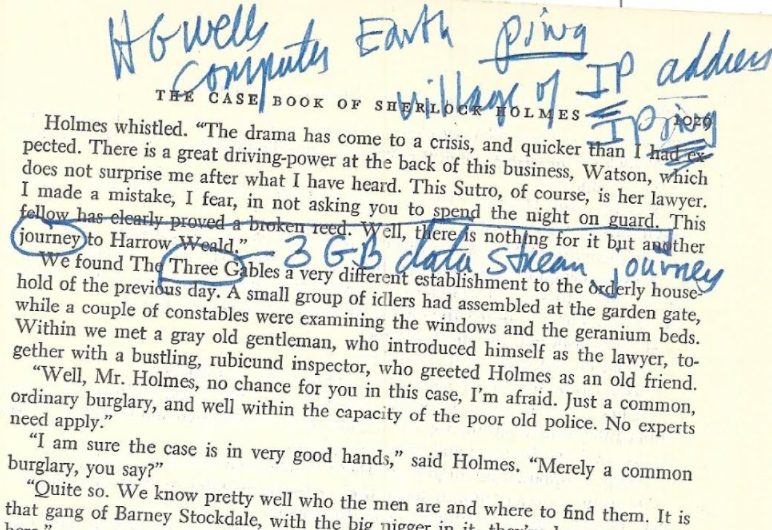 H G wells Earth ping
computer village of IP address
THE CASE BOOK OF SHERLOCK HOLMES 1029
IPing
Holmes whistled. “The drama has come to a crisis, and quicker than I had ex-
pected. There is a great driving-power at the back of this business, Watson, which
does not surprise me after what I have heard. This Sutro, of course, is her lawyer.
I made a mistake, I fear, in not asking you to spend the night on guard. This
fellow has clearly proved a broken reed. Well, there is nothing for it but another
journey to Harrow Weald.”
3 GB data stream journey
We found The Three Gables a very different establishment to the orderly house-
hold of the previous day. A small group of idlers had assembled at the garden gate,
while a couple of constables were examining the windows and the geranium beds.
Within we met a gray old gentleman, who introduced himself as the lawyer, to-
gether with a bustling, rubicund inspector, who greeted Holmes as an old friend.
“Well, Mr. Holmes, no chance for you in this case, I’m afraid. Just a common,
ordinary burglary, and well within the capacity of the poor old police. No experts
need apply.”
“I am sure the case is in very good hands,” said Holmes. “Merely a common
burglary, you say?”
“Quite so. We know pretty well who the men are and where to find them. It is
that gang of Barney Stockdale, with the big nigger in it,